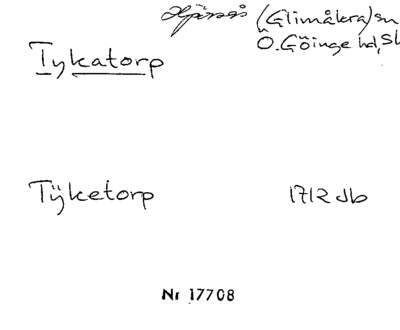 Hjärsås (Glimåkra) sn
Ö. Göinge hd, Sk
Tykatorp
Tÿketorp 1712 Jb
Nr 17708